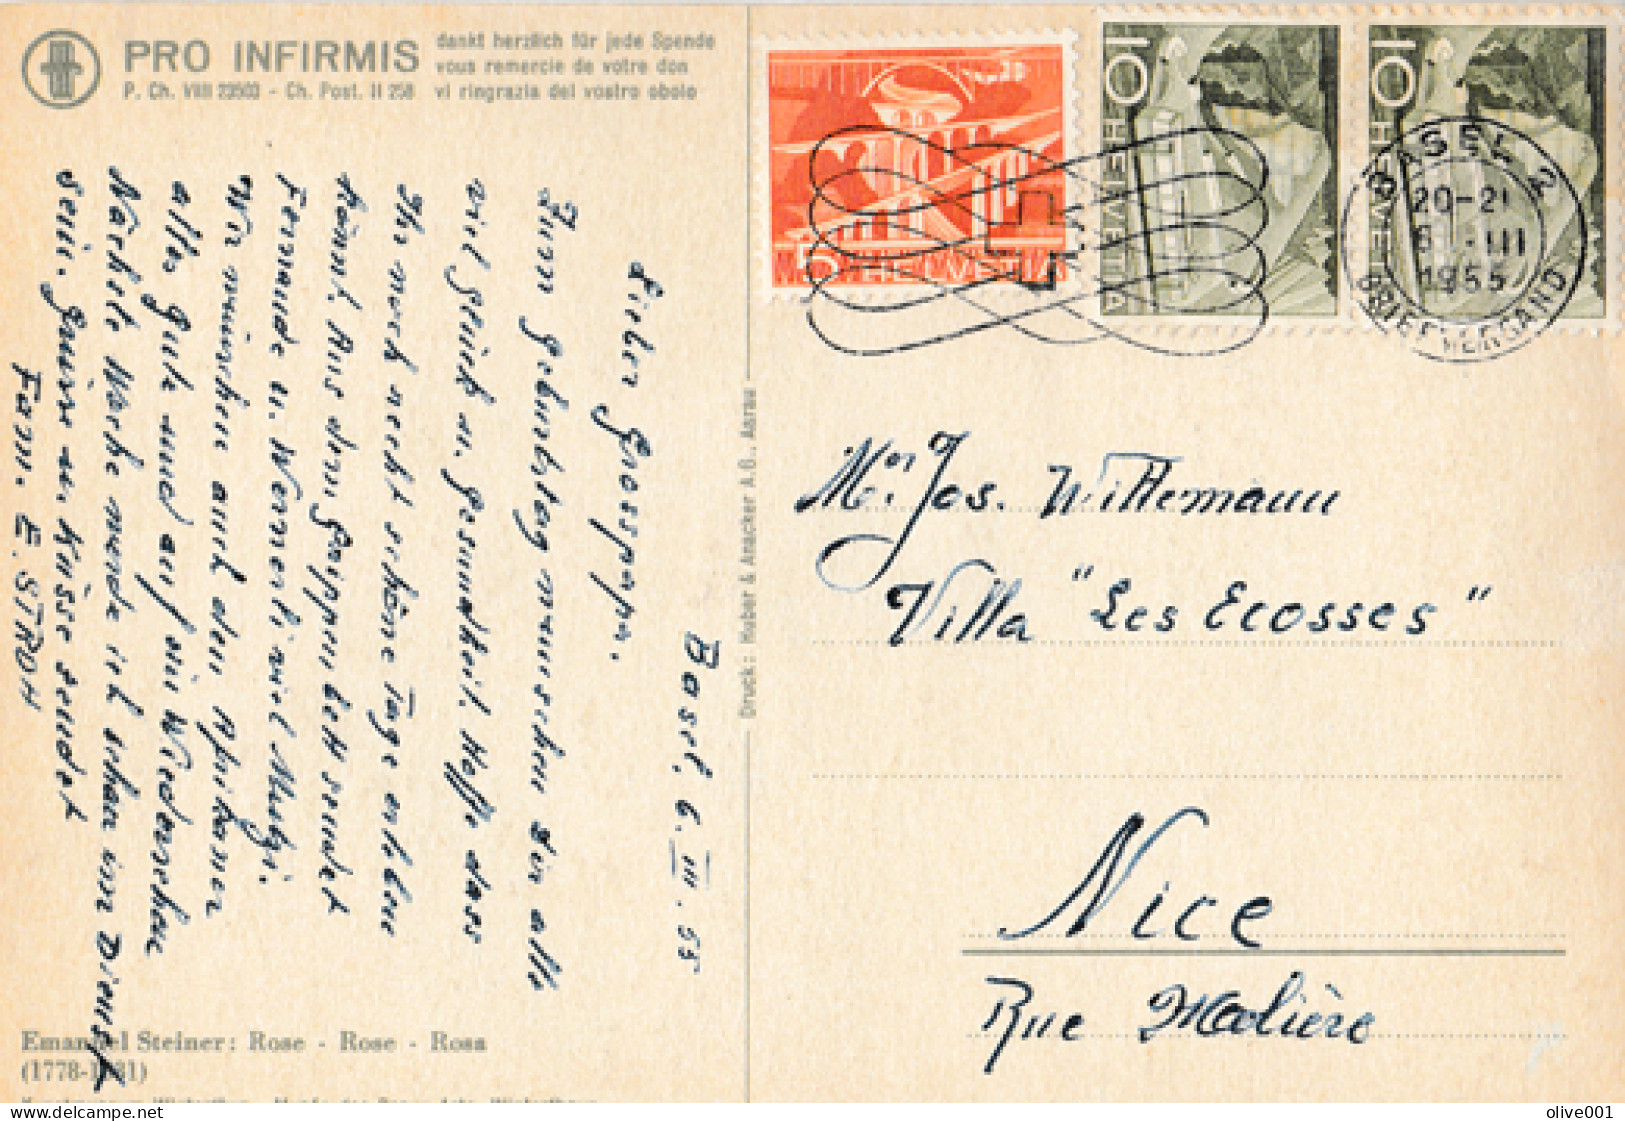 PRO INFIRMIS
P. Ch. VIII 23503 - Ch. Post. II 258
dankt herzlich für jede Spende
vous remercie de votre don
vi ringrazia del vostro obolo
Basel, 6. III. 55
Lieber Grosspapa.
Zum Geburtstag wünschen Dir alle
viel Glück u. Gesundheit. Hoffe dass
Ihr noch recht schöne Tage erleben
könnt. Aus dem Grippenbett sendet
Fernande u. Werner li viel Müntzi.
Wir wünschen auch den Afrikaner
alles Gute und auf ein Wiedersehen
Nächste Woche werde ich schon im Dienst
sein. Grüsse u. Küsse sendet
Fam. E. STROH
Emanuel Steiner: Rose - Rose - Rosa
(1778-1831)
Druck: Huber & Anacker A.G., Aarau
5 HELVETIA
10 HELVETIA
10 HELVETIA
BASEL 2
20-21
6. III
1955
BRIEFVERSAND
Mr. Jos. Wittemann
Villa "Les Ecosses"
Nice
Rue Molière
olive001